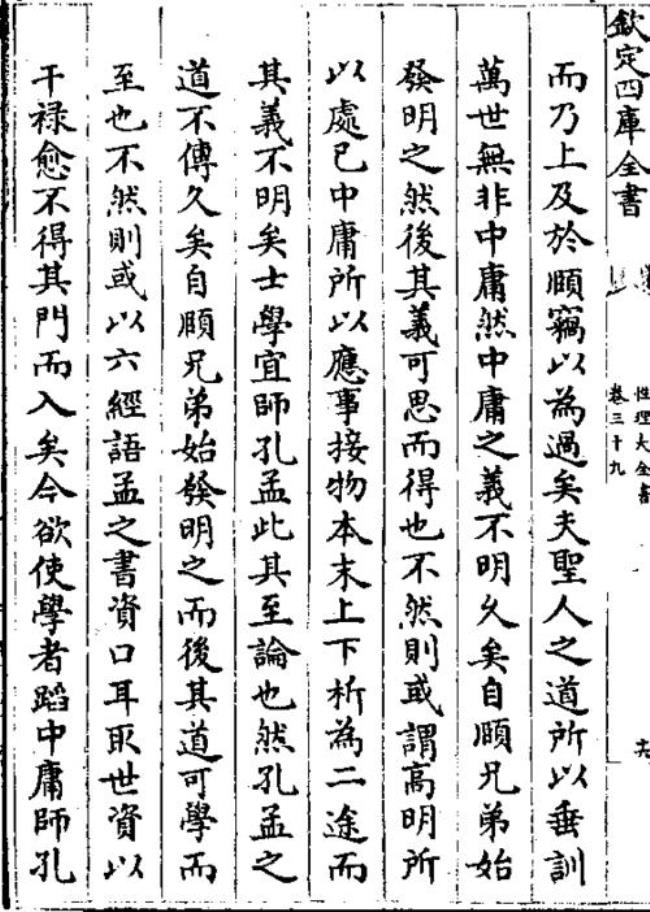 欽定四庫全書
性理大全書
卷三十九
而乃上及於頤竊以為過矣夫聖人之道所以垂訓
萬世無非中庸然中庸之義不明久矣自頤兄弟始
發明之然後其義可思而得也不然則或謂高明所
以處已中庸所以應事接物本末上下析為二途而
其義不明矣士學宜師孔孟此其至論也然孔孟之
道不傳久矣自頤兄弟始發明之而後其道可學而
至也不然則或以六經語孟之書資口耳取世資以
干祿愈不得其門而入矣今欲使學者蹈中庸師孔